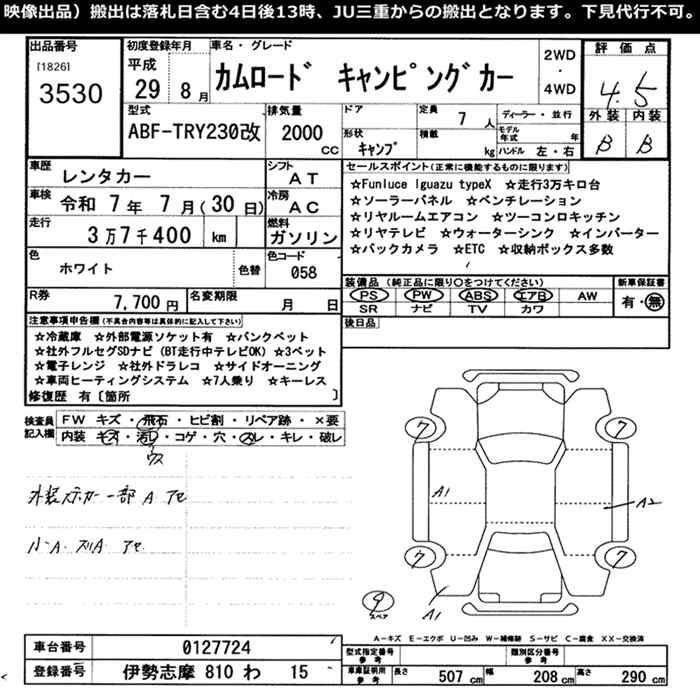 映像出品）搬出は落札日含む4日後13時、JU三重からの搬出となります。下見代行不可。
出品番号
[1826]
3530
初度登録年月
平成
29 8 月
車名・グレード
カムロード キャンピングカー
2WD
・
4WD
評価点
4.5
外装 内装
B B
型式
ABF-TRY230改
排気量
2000
CC
ドア
形状
キャンプ
定員
7 人
積載
kg
ディーラー・並行
モデル年式 年
ハンドル 左・右
車歴
レンタカー
シフト
AT
車検
令和 7年 7月(30日)
冷房
AC
走行
3万7千400 km
燃料
ガソリン
色
ホワイト
色替
色コード
058
R券
7,700円
名変期限
月 日
セールスポイント(正常に機能するものに限ります)
☆Funluce Iguazu typeX ☆走行3万キロ台
☆ソーラーパネル ☆ベンチレーション
☆リヤルームエアコン ☆ツーコンロキッチン
☆リヤテレビ ☆ウォーターシンク ☆インバーター
☆バックカメラ ☆ETC ☆収納ボックス多数
装備品 (純正品に限り○をつけてください)
PS PW ABS エアB AW
SR ナビ TV カワ
新車保証書
有・無
後日品
注意事項申告欄(不具合内容等は具体的に記入して下さい)
☆冷蔵庫 ☆外部電源ソケット有 ☆バンクベット
☆社外フルセグSDナビ (BT走行中テレビOK) ☆3ベット
☆電子レンジ ☆社外ドラレコ ☆サイドオーニング
☆車両ヒーティングシステム ☆7人乗り ☆キーレス
修復歴 有〔箇所 〕
検査員
記入欄
FW キズ・飛石・ヒビ割・リペア跡・×要
内装 キズ・汚レ・コゲ・穴・スレ・キレ・破レ
ウス
外装ステッカー一部A アセ
小A アセ
7 7
A1 A2
7 7
A1
スペア
A－キズ E－エクボ U－凹み W－補修跡 S－サビ C－腐食 XX－交換済
車台番号
0127724
登録番号
伊勢志摩 810 わ 15
型式指定番号
参考
類別区分番号
参考
車庫証明用
参考
長さ 507 cm 幅 208 cm 高さ 290 cm